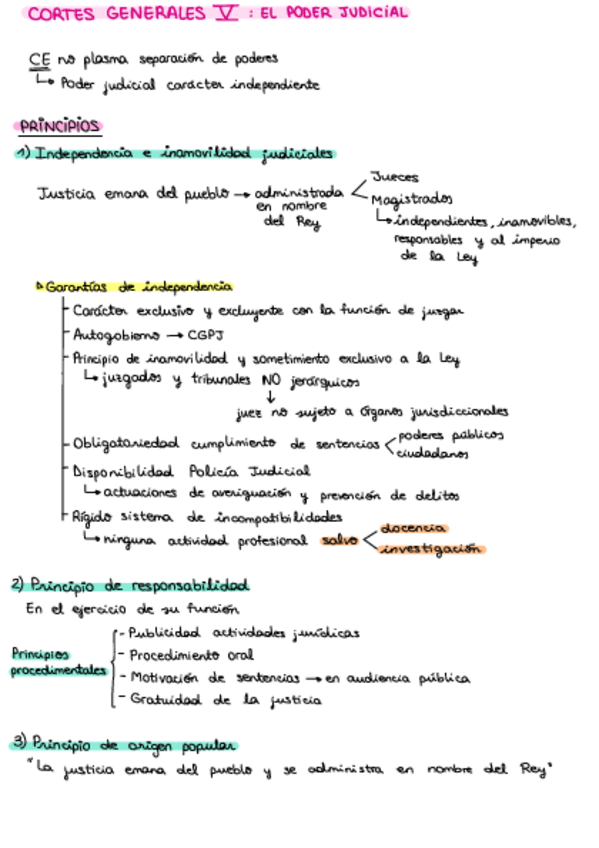 CORTES GENERALES V : EL PODER JUDICIAL
CE no plasma separación de poderes
↳ Poder judicial carácter independiente
PRINCIPIOS
1) Independencia e inamovilidad judiciales
Justicia emana del pueblo → administrada en nombre del Rey
Jueces
Magistrados
↳ independientes, inamovibles,
responsables y al imperio
de la Ley
Garantías de independencia
Carácter exclusivo y excluyente con la función de juzgar
Autogobierno → CGPJ
Principio de inamovilidad y sometimiento exclusivo a la Ley
↳ juzgados y tribunales NO jerárquicos
↓
juez no sujeto a órganos jurisdiccionales
Obligatoriedad cumplimiento de sentencias
poderes públicos
ciudadanos
Disponibilidad Policía Judicial
↳ actuaciones de averiguación y prevención de delitos
Rígido sistema de incompatibilidades
↳ ninguna actividad profesional salvo
docencia
investigación
2) Principio de responsabilidad
En el ejercicio de su función
Principios
procedimentales
- Publicidad actividades jurídicas
- Procedimiento oral
- Motivación de sentencias → en audiencia pública
- Gratuidad de la justicia
3) Principio de origen popular
"La justicia emana del pueblo y se administra en nombre del Rey"